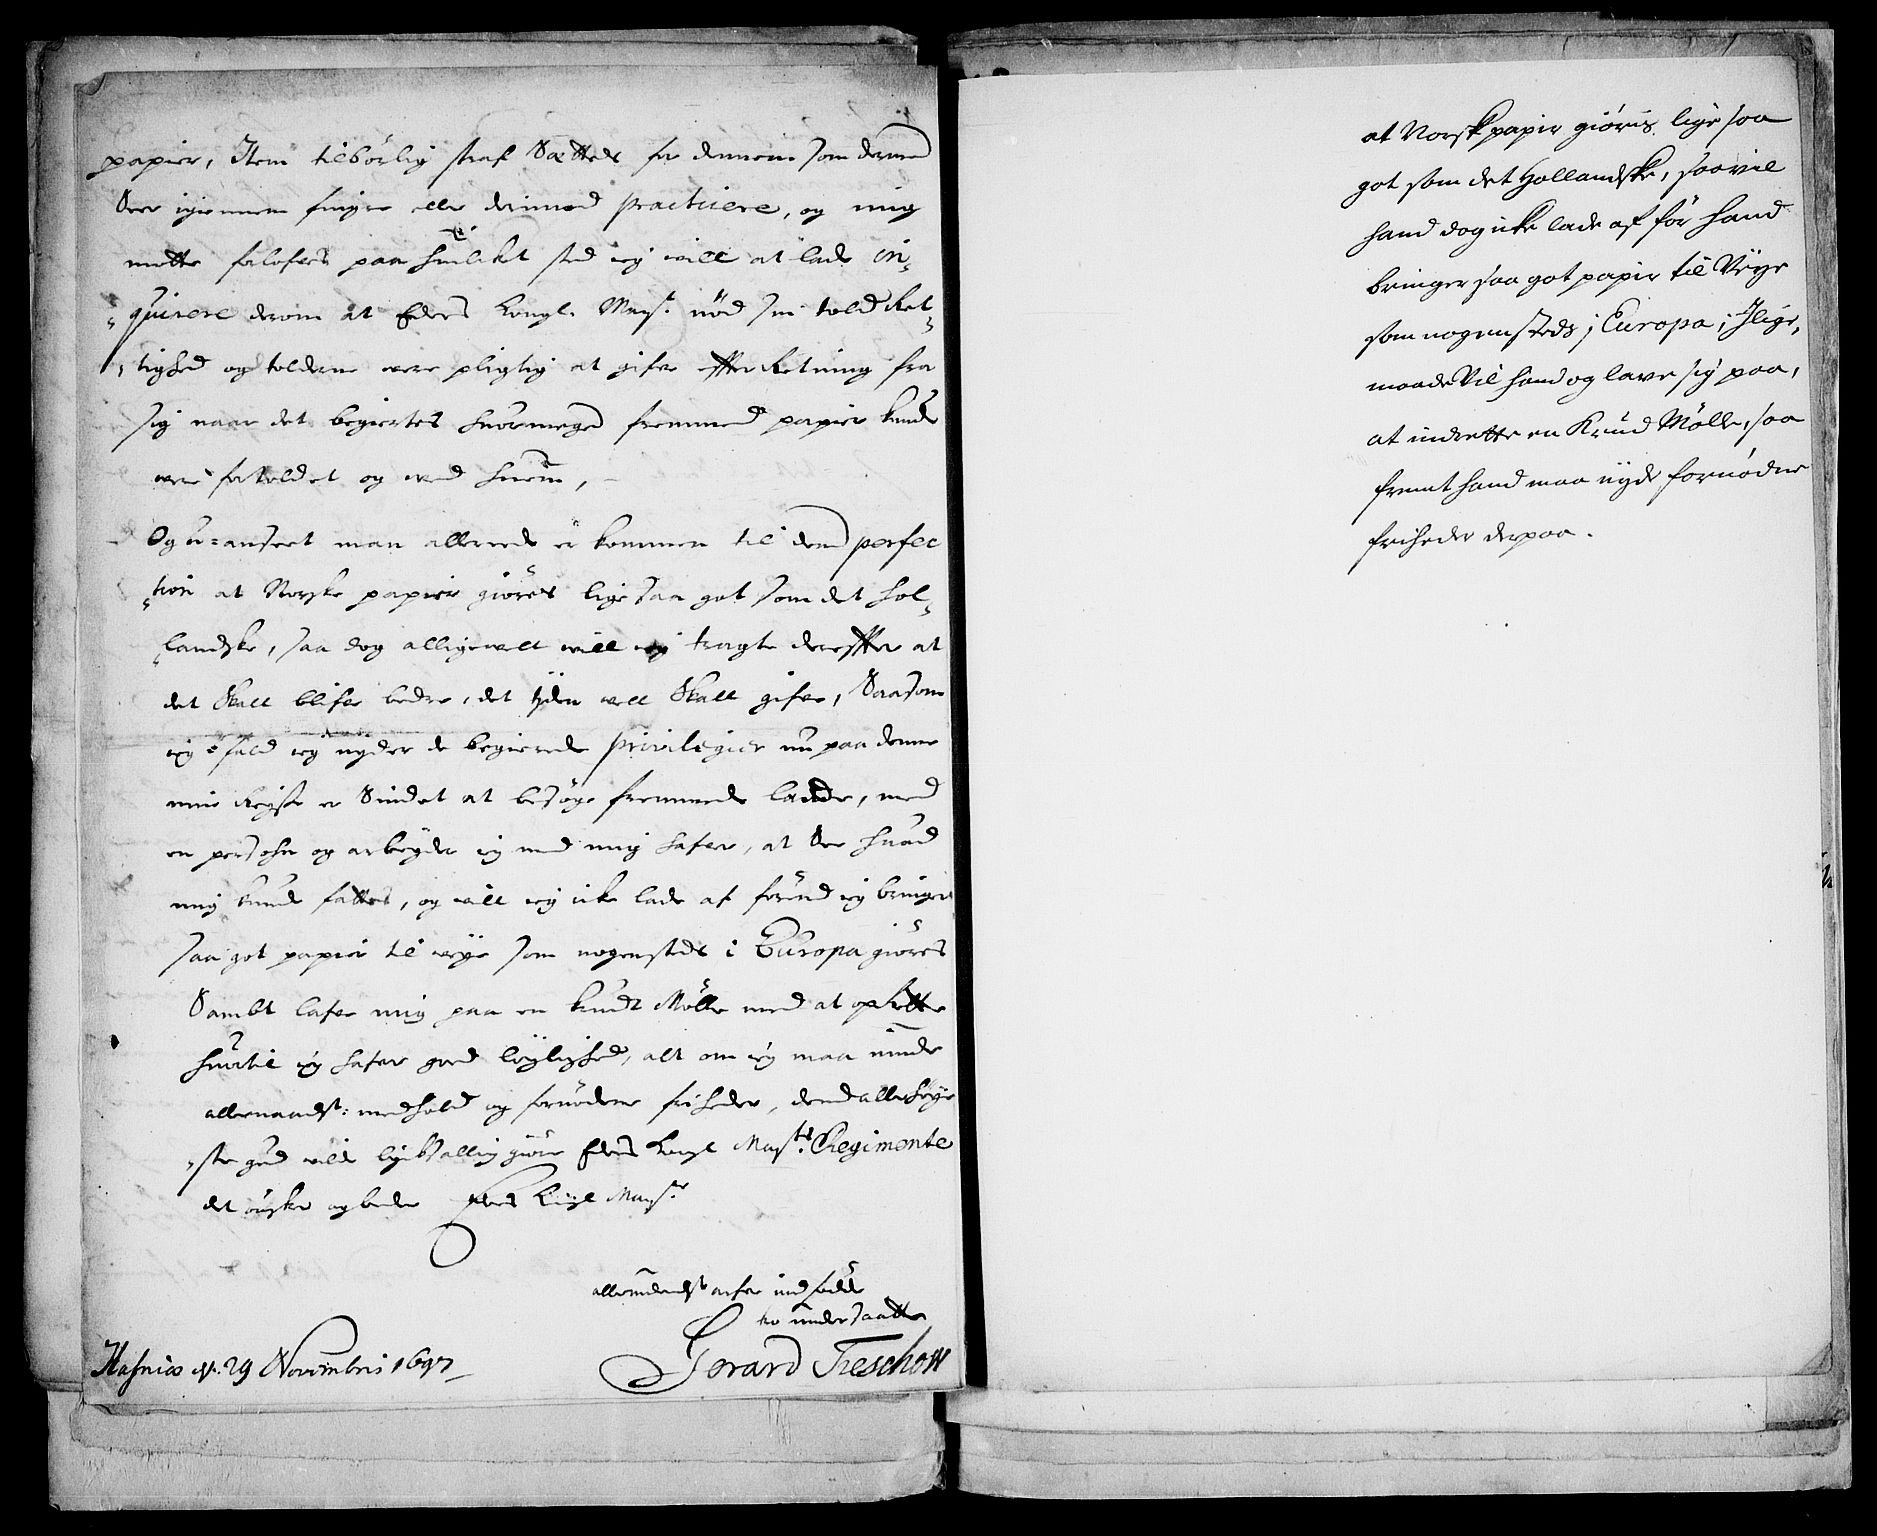 papier, Item tilbörlig straf sættes for dennem som dermed
Seer igiennem fingre eller derimod practicere, og mig
motte forlofves paa huilket sted ieg will at lade in„
„quirere derom at Eders Kongl. Mayt. nød sin told Ret„
„tighed og tolderne vere pligtig at gifve effterRetning fra
sig naar det begiertes huormeget fremmed papier kunde
vere fortoldet og ved huem,
Og u=anseet man allerede er kommen til dend perfec
„tion at Norske papier giøres lige saa got som det hol„
„landske, saa dog alligevell will ieg tragte dereffter at
det skall blifve bedre, det tiden vell skall gifve, Saasom
ieg ifald ieg nyder de begierede privilegier nu paa denne
min Reyse er Sindet at besøge fremmede lande, med
en persohn og arbeyder ieg med mig hafver, at See huad
mig kunde fattes, og will ieg icke lade af førend ieg bringer
saa got papier til veye som nogensteds i Europa giøres
Sambt lafve mig paa en krudt Mölle med at opRette
huortil ieg hafver goed leylighed, alt om ieg maa niude
allernaadst: medhold og fornödene friheder, dend allerhöye
„ste gud wilde lycksallig giøre Eders Kongl Mayts. Regimente
det önsker og beder Eders Kongl Mayts
allerunderdst arfve indfødde
tro undersaatte
Gerard Treschow
Hafniæ d. 29 Novembris 1697
at Norsk papir giøris lige saa
got som det Hollandske, saa vil
hand dog icke lade af før hand
bringer saa got papir til Veye
som nogensteds i Europa; Ilige,
maade Vil hand og lave sig paa,
at indrette en Krud Mölle, saa
fremt hand maa nyde fornødne
friheder derpaa.